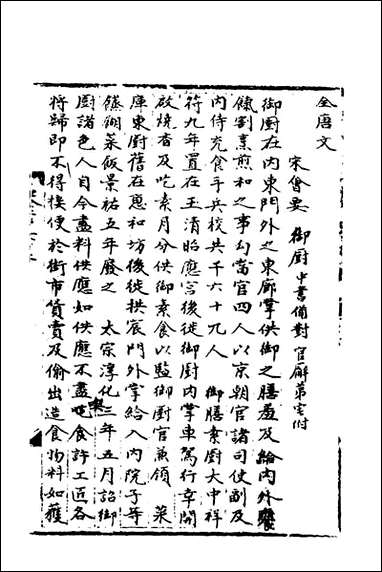 全唐文
宋會要 御厨 中書備對 官廨第宅附
御厨在内東門外之東廊掌供御之膳羞及給内外饔
餼割烹煎和之事勾當官四人以京朝官諸司使副及
内侍充食手兵校共千六十九人 御膳素厨大中祥
符九年置在玉清昭應宫後徙御厨内掌車駕行幸開
啟燒香及吃素月分供御素食以監御厨官兼領 菜
庫東厨舊在應和坊後徙拱宸門外掌給入内院子等
餅餬菜飯景祐五年廢之 太宗淳化二年五月詔御
厨諸色人自今盡料供應如供應不盡 食許工匠各
將歸即不得挨便於街市貨賣及偷出造食物料如獲